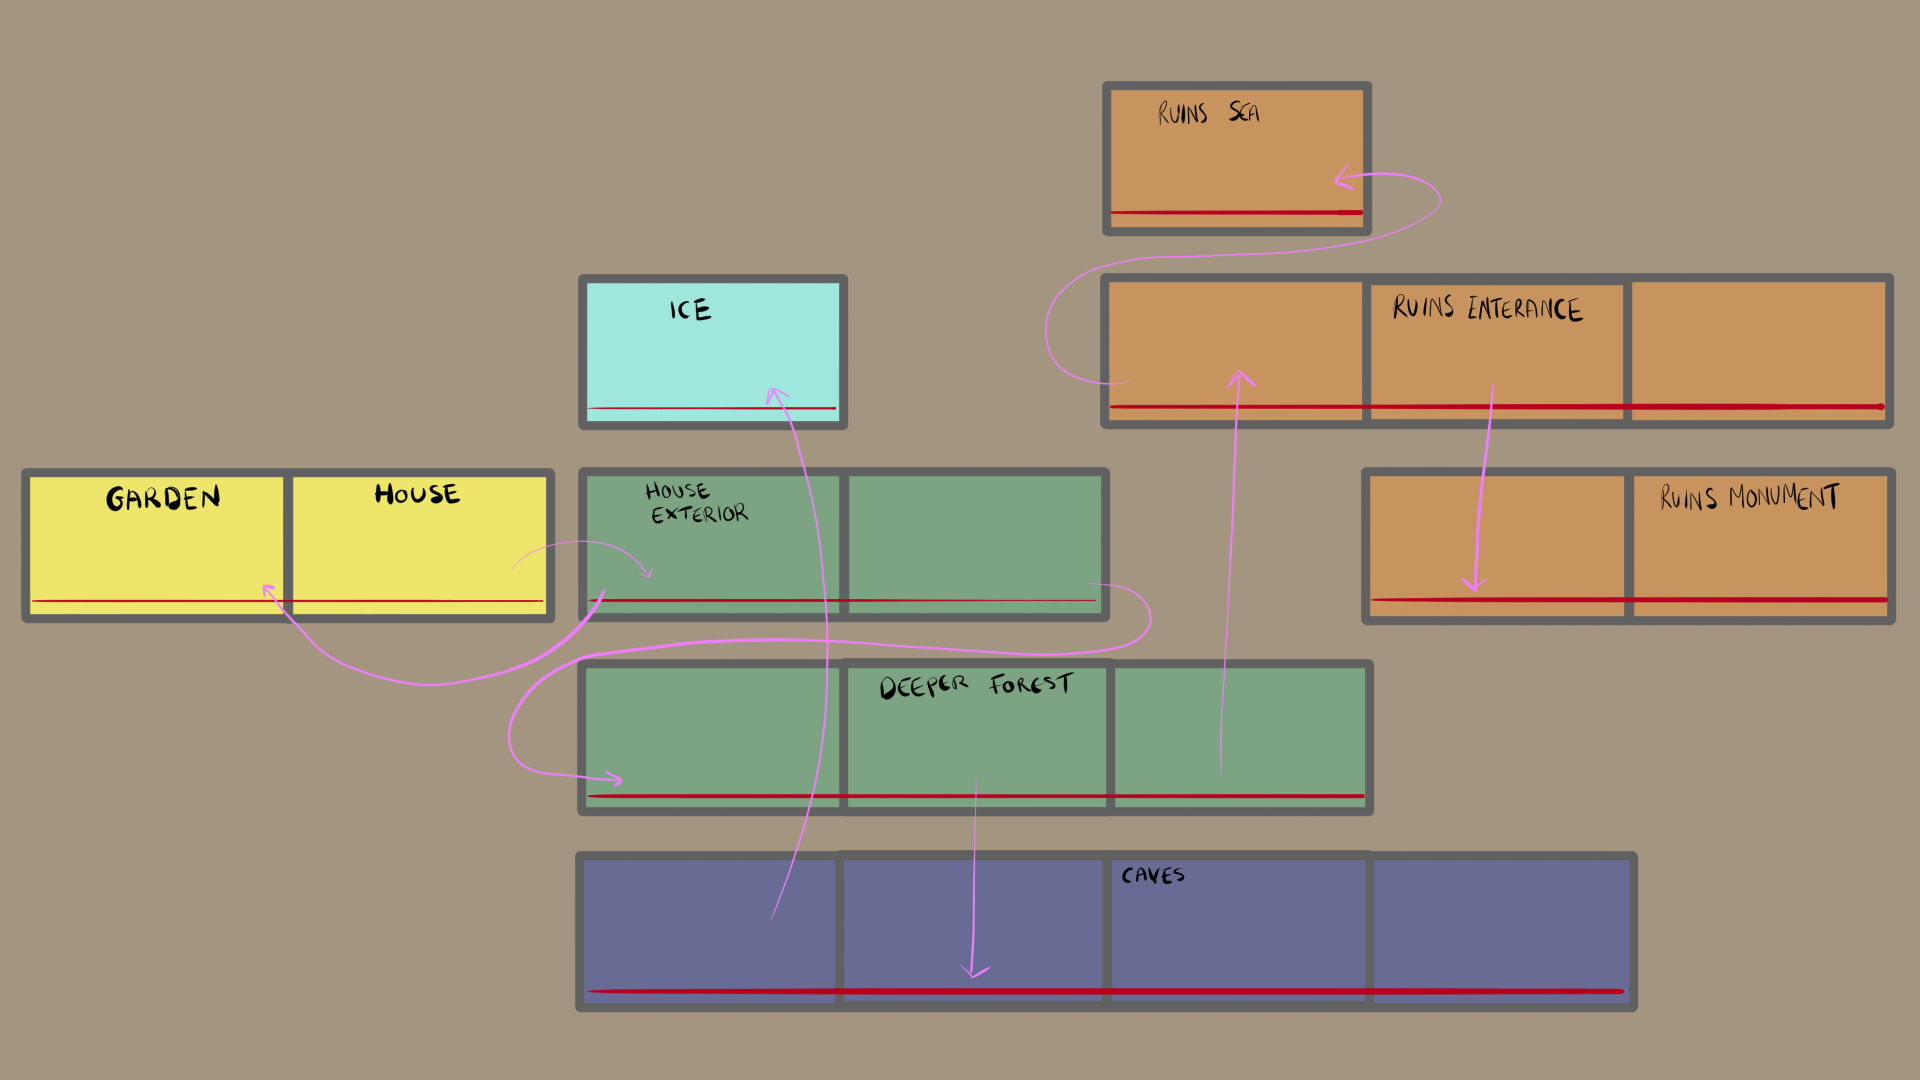 RUINS SEA
ICE
RUINS ENTERANCE
GARDEN
HOUSE
HOUSE
EXTERIOR
RUINS MONUMENT
DEEPER FOREST
CAVES